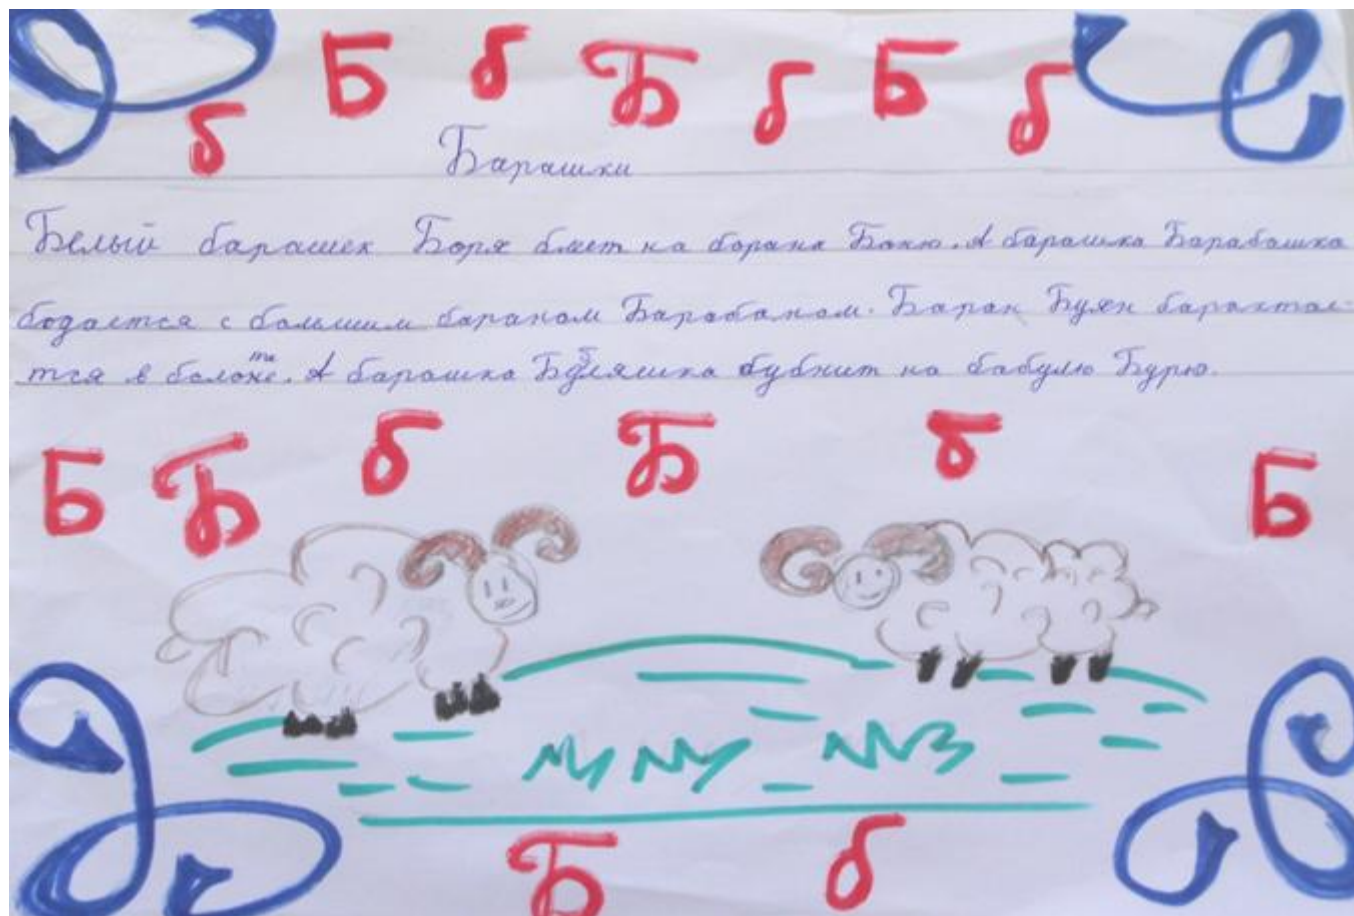 Б б Б б Б б
б
Барашки
Белый барашек Боря блеет на барана Баню. А барашка Барабашка
бодается с большим бараном Барабаном. Баран Буян барахтае-
тся в болоте. А барашка Бяшка бубнит на бабулю Бурю.
Б Б б Б б Б
Б б